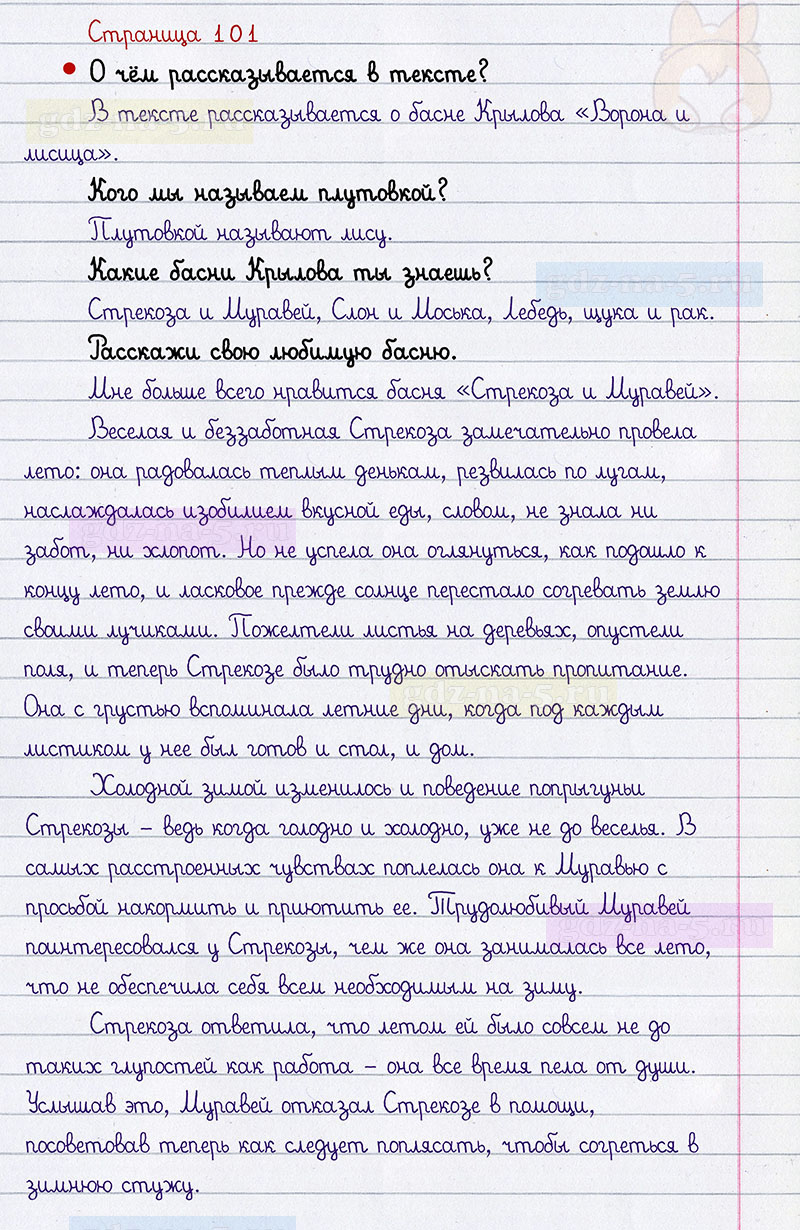 Страница 101
• О чём рассказывается в тексте?
В тексте рассказывается о басне Крылова «Ворона и
gdz-na-5.ru
лисица».
Кого мы называем плутовкой?
Плутовкой называют лису.
Какие басни Крылова ты знаешь?
gdz-na-5.ru
Стрекоза и Муравей, Слон и Моська, Лебедь, щука и рак.
Расскажи свою любимую басню.
Мне больше всего нравится басня «Стрекоза и Муравей».
Веселая и беззаботная Стрекоза замечательно провела
лето: она радовалась теплым денькам, резвилась по лугам,
наслаждалась изобилием вкусной еды, словом, не знала ни
gdz-na-5.ru
забот, ни хлопот. Но не успела она оглянуться, как подошло к
концу лето, и ласковое прежде солнце перестало согревать землю
своими лучиками. Пожелтели листья на деревьях, опустели
поля, и теперь Стрекозе было трудно отыскать пропитание.
gdz-na-5.ru
Она с грустью вспоминала летние дни, когда под каждым
листиком у нее был готов и стол, и дом.
Холодной зимой изменилось и поведение попрыгуньи
Стрекозы – ведь когда голодно и холодно, уже не до веселья. В
самых расстроенных чувствах поплелась она к Муравью с
просьбой накормить и приютить ее. Трудолюбивый Муравей
gdz-na-5.ru
поинтересовался у Стрекозы, чем же она занималась все лето,
что не обеспечила себя всем необходимым на зиму.
Стрекоза ответила, что летом ей было совсем не до
таких глупостей как работа – она все время пела от души.
Услышав это, Муравей отказал Стрекозе в помощи,
посоветовав теперь как следует поплясать, чтобы согреться в
зимнюю стужу.